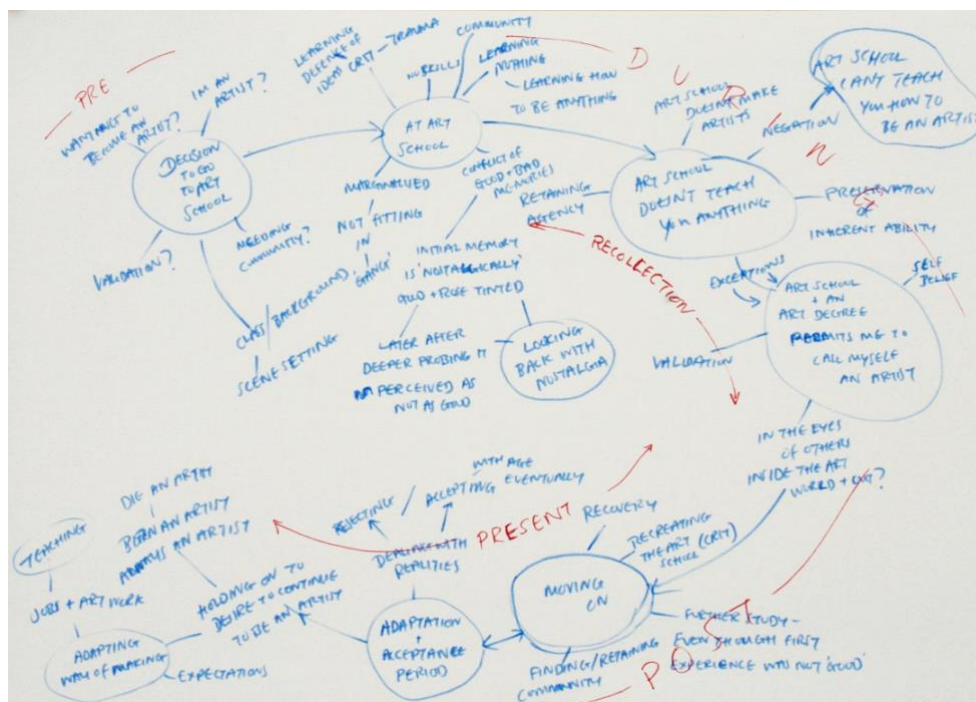 PRE
WANTING TO
BECOME AN
ARTIST?
I'M AN
ARTIST?
DECISION
TO GO
TO ART
SCHOOL
VALIDATION?
NEEDING
COMMUNITY?
CLASS/BACKGROUND,
SCENE SETTING
LEARNING
DEFENCE OF
IDEAS CRIT - TRAUMA
NO SKILLS
COMMUNITY
LEARNING
NOTHING
LEARNING HOW
TO BE ANYTHING
AT ART
SCHOOL
MARGINALISED
NOT FITTING
IN
'GANG'
CONFLICT OF
GOOD + BAD
MEMORIES
INITIAL MEMORY
IS 'NOSTALGICALLY'
GOOD + ROSE TINTED
LATER AFTER
DEEPER PROBING IT
PERCEIVED AS
NOT AS GOOD
LOOKING
BACK WITH
NOSTALGIA
DURING
ART SCHOOL
DOESN'T MAKE
ARTISTS
NEGATION
ART SCHOOL
CAN'T TEACH
YOU HOW TO
BE AN ARTIST
RETAINING
AGENCY
ART SCHOOL
DOESN'T TEACH
YOU ANYTHING
PRESERVATION
of
INHERENT ABILITY
RECOLLECTION
EXCEPTIONS
ART SCHOOL
+ AN
ART DEGREE
PERMITS ME TO
CALL MYSELF
AN ARTIST
SELF
BELIEF
VALIDATION
IN THE EYES
OF OTHERS
INSIDE THE ART
WORLD + OUT?
PRESENT
RECOVERY
RECREATING
THE ART (CRIT)
SCHOOL
MOVING
ON
FURTHER STUDY -
EVEN THOUGH FIRST
EXPERIENCE WAS NOT 'GOOD'
POST
FINDING/RETAINING
COMMUNITY
REJECTING /
WITH AGE
ACCEPTING EVENTUALLY
DEALING WITH
REALITIES
ADAPTATION
+
ACCEPTANCE
PERIOD
HOLDING ON TO
DESIRE TO CONTINUE
TO BE AN ARTIST
DIE AN ARTIST
BORN AN ARTIST
ALWAYS AN ARTIST
TEACHING
JOBS + ART WORK
ADAPTING
WAY OF MAKING
EXPECTATIONS